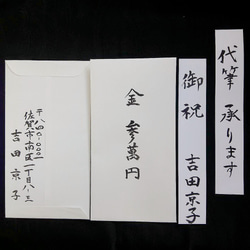 代筆 承ります
御祝 吉田京子
金 参萬円
〒八四〇-〇〇〇一
佐賀市南区一丁目八-三
吉田 京子